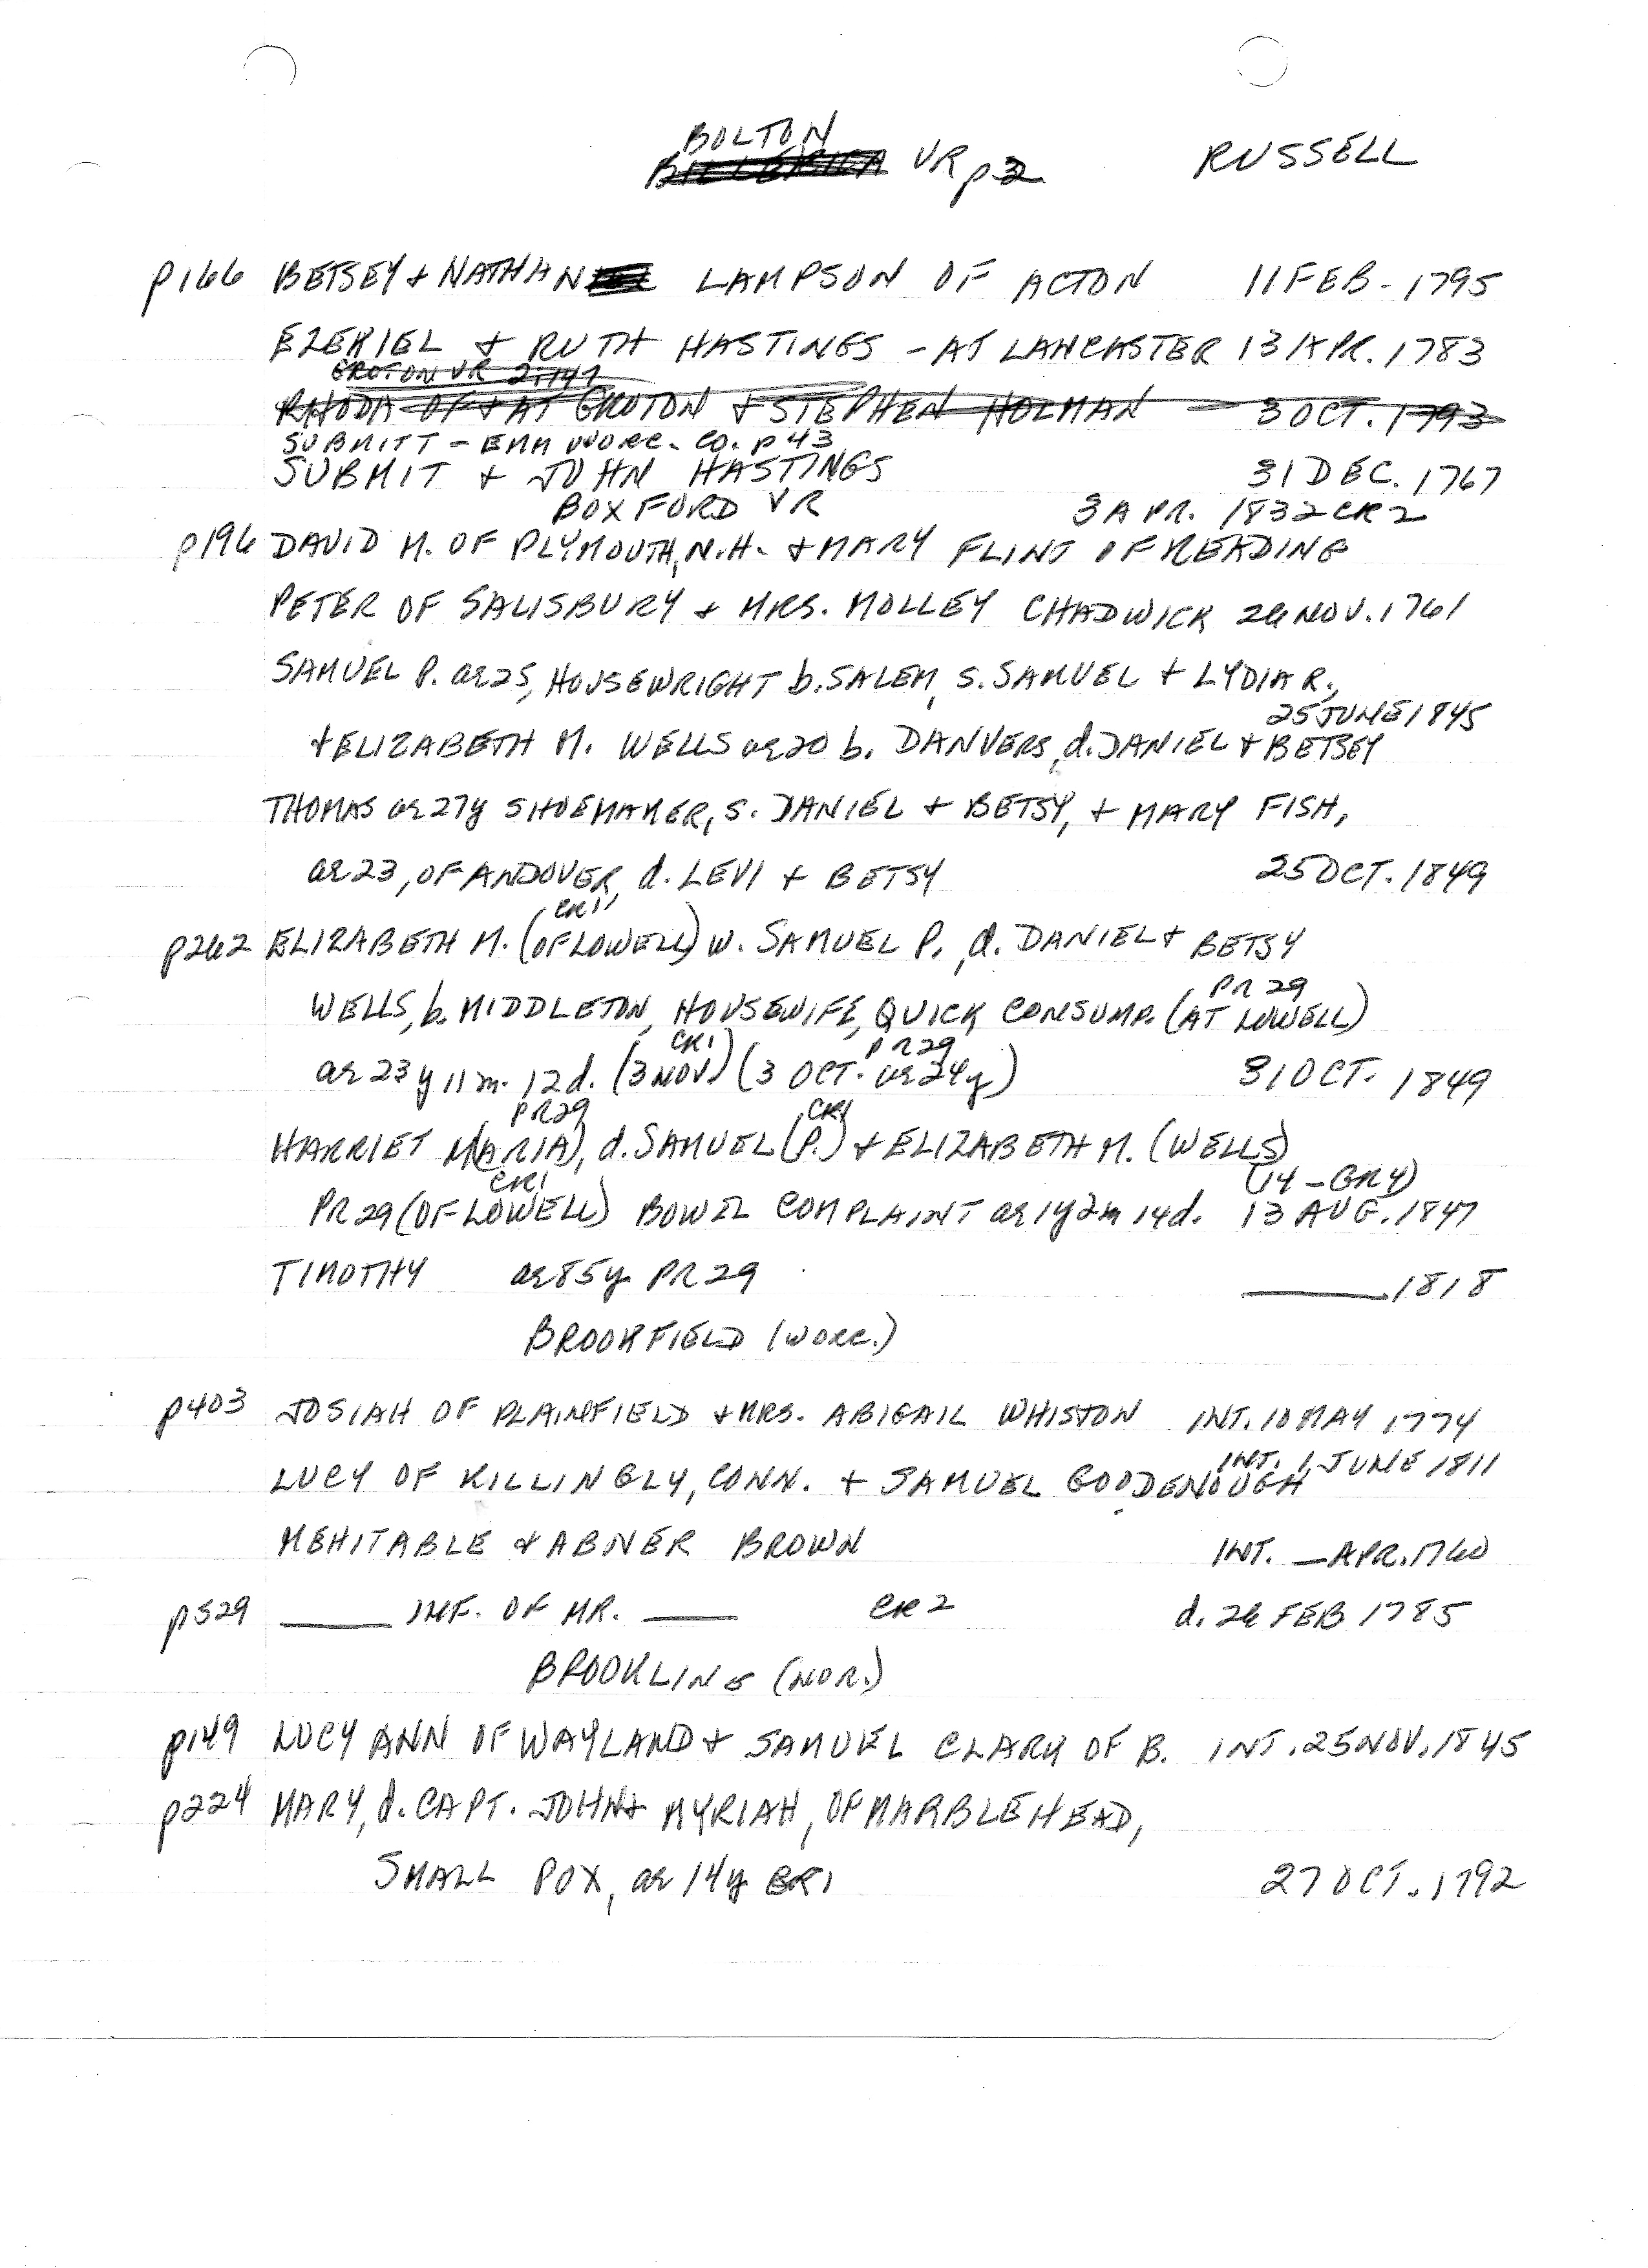 BOLTON
BILLERICA VR p2 RUSSELL
p166 BETSEY + NATHAN LAMPSON OF ACTON 11 FEB. 1795
EZEKIEL + RUTH HASTINGS - AT LANCASTER 13 APR. 1783
GROTON VR 2:147
RHODA OF + AT GROTON + STEPHEN HOLMAN 3 OCT. 1793
SUBMITT - EMM WORC. CO. p43
SUBMIT + JOHN HASTINGS 31 DEC. 1767
BOXFORD VR 3 APR. 1832 CR2
p196 DAVID M. OF PLYMOUTH, N.H. + MARY FLINT OF READING
PETER OF SALISBURY + MRS. MOLLEY CHADWICK 26 NOV. 1761
SAMUEL P. ae 25, HOUSEWRIGHT b. SALEM, s. SAMUEL + LYDIA R.,
25 JUNE 1845
+ ELIZABETH M. WELLS ae 20 b. DANVERS, d. DANIEL + BETSEY
THOMAS ae 27y SHOEMAKER, S. DANIEL + BETSY, + MARY FISH,
ae 23, OF ANDOVER, d. LEVI + BETSY 25 OCT. 1849
CR1
p262 ELIZABETH M. (OF LOWELL) w. SAMUEL P., d. DANIEL + BETSY
PR 29
WELLS, b. MIDDLETON, HOUSEWIFE, QUICK CONSUMP. (AT LOWELL)
CR1 PR29
ae 23y 11m. 12d. (3 NOV.) (3 OCT. ae 24y) 31 OCT. 1849
PR29 CR1
HARRIET M(ARIA), d. SAMUEL (P.) + ELIZABETH M. (WELLS)
CR1 (14 - GR4)
PR29 (OF LOWELL) BOWEL COMPLAINT ae 1y 2m 14d. 13 AUG. 1847
TIMOTHY ae 85y PR 29 ____ 1818
BROOKFIELD (WORC.)
p403 JOSIAH OF PLAINFIELD + MRS. ABIGAIL WHISTON INT. 10 MAY 1774
INT. 1 JUNE 1811
LUCY OF KILLINGLY, CONN. + SAMUEL GOODENOUGH
MEHITABLE + ABNER BROWN INT. _ APR. 1760
p529 ____ INF. OF MR. ____ CR2 d. 26 FEB 1785
BROOKLINE (NOR.)
p149 LUCY ANN OF WAYLAND + SAMUEL CLARK OF B. INT. 25 NOV. 1845
p224 MARY, d. CAPT. JOHN + MYRIAH, OF MARBLEHEAD,
SMALL POX, ae 14y CR1 27 OCT. 1792